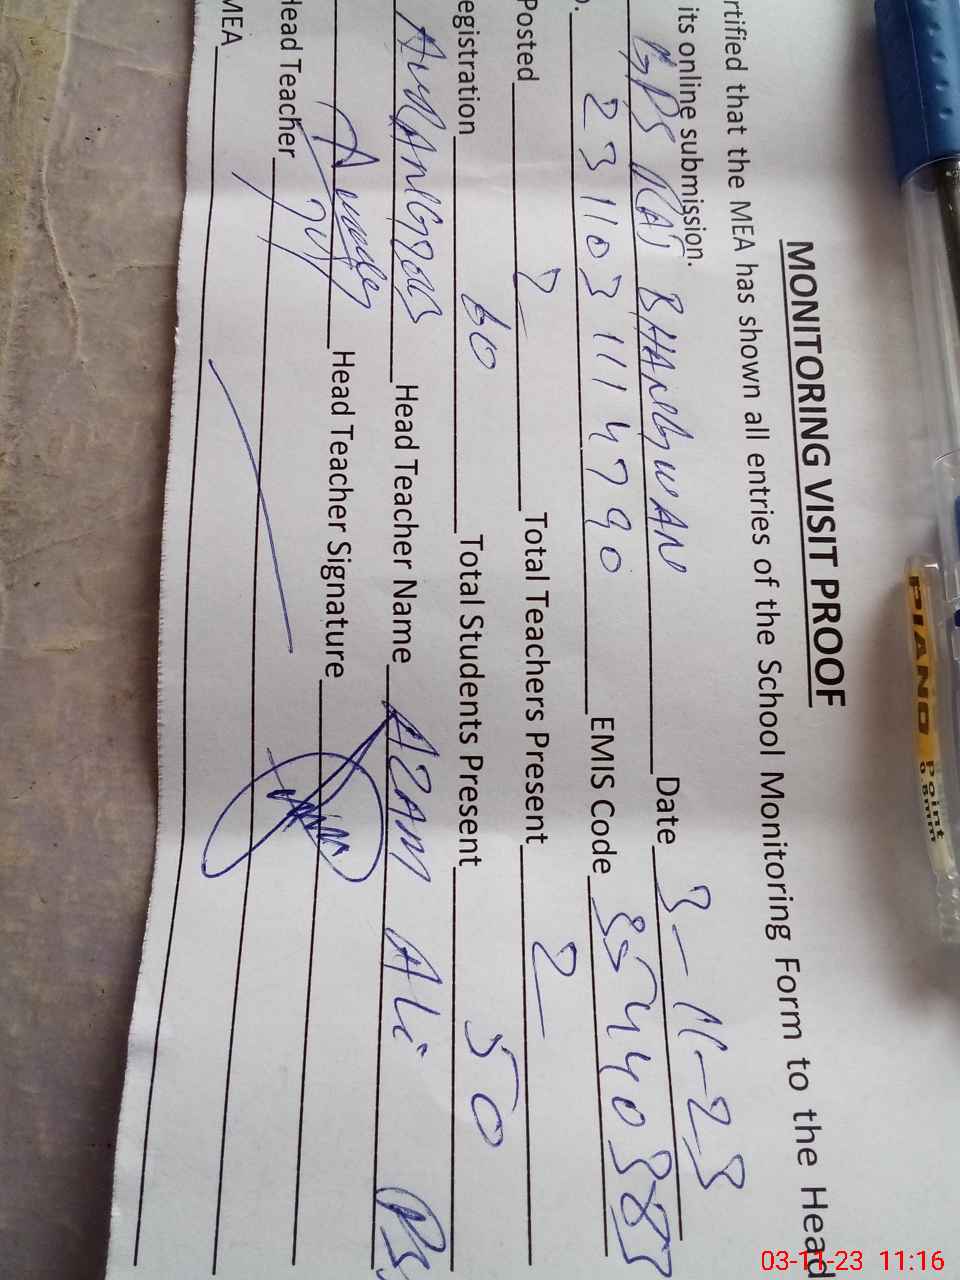 MONITORING VISIT PROOF
rtified that the MEA has shown all entries of the School Monitoring Form to the Head
its online submission.
GPS RAI BHANGWAN Date 3-11-23
2311031114790 EMIS Code
Posted 2 Total Teachers Present 2
egistration 60 Total Students Present 50
Head Teacher Name AZAM Ali
Head Teacher Signature
Head Teacher
MEA
PIANO Point
0.8mm
03-11-23 11:16